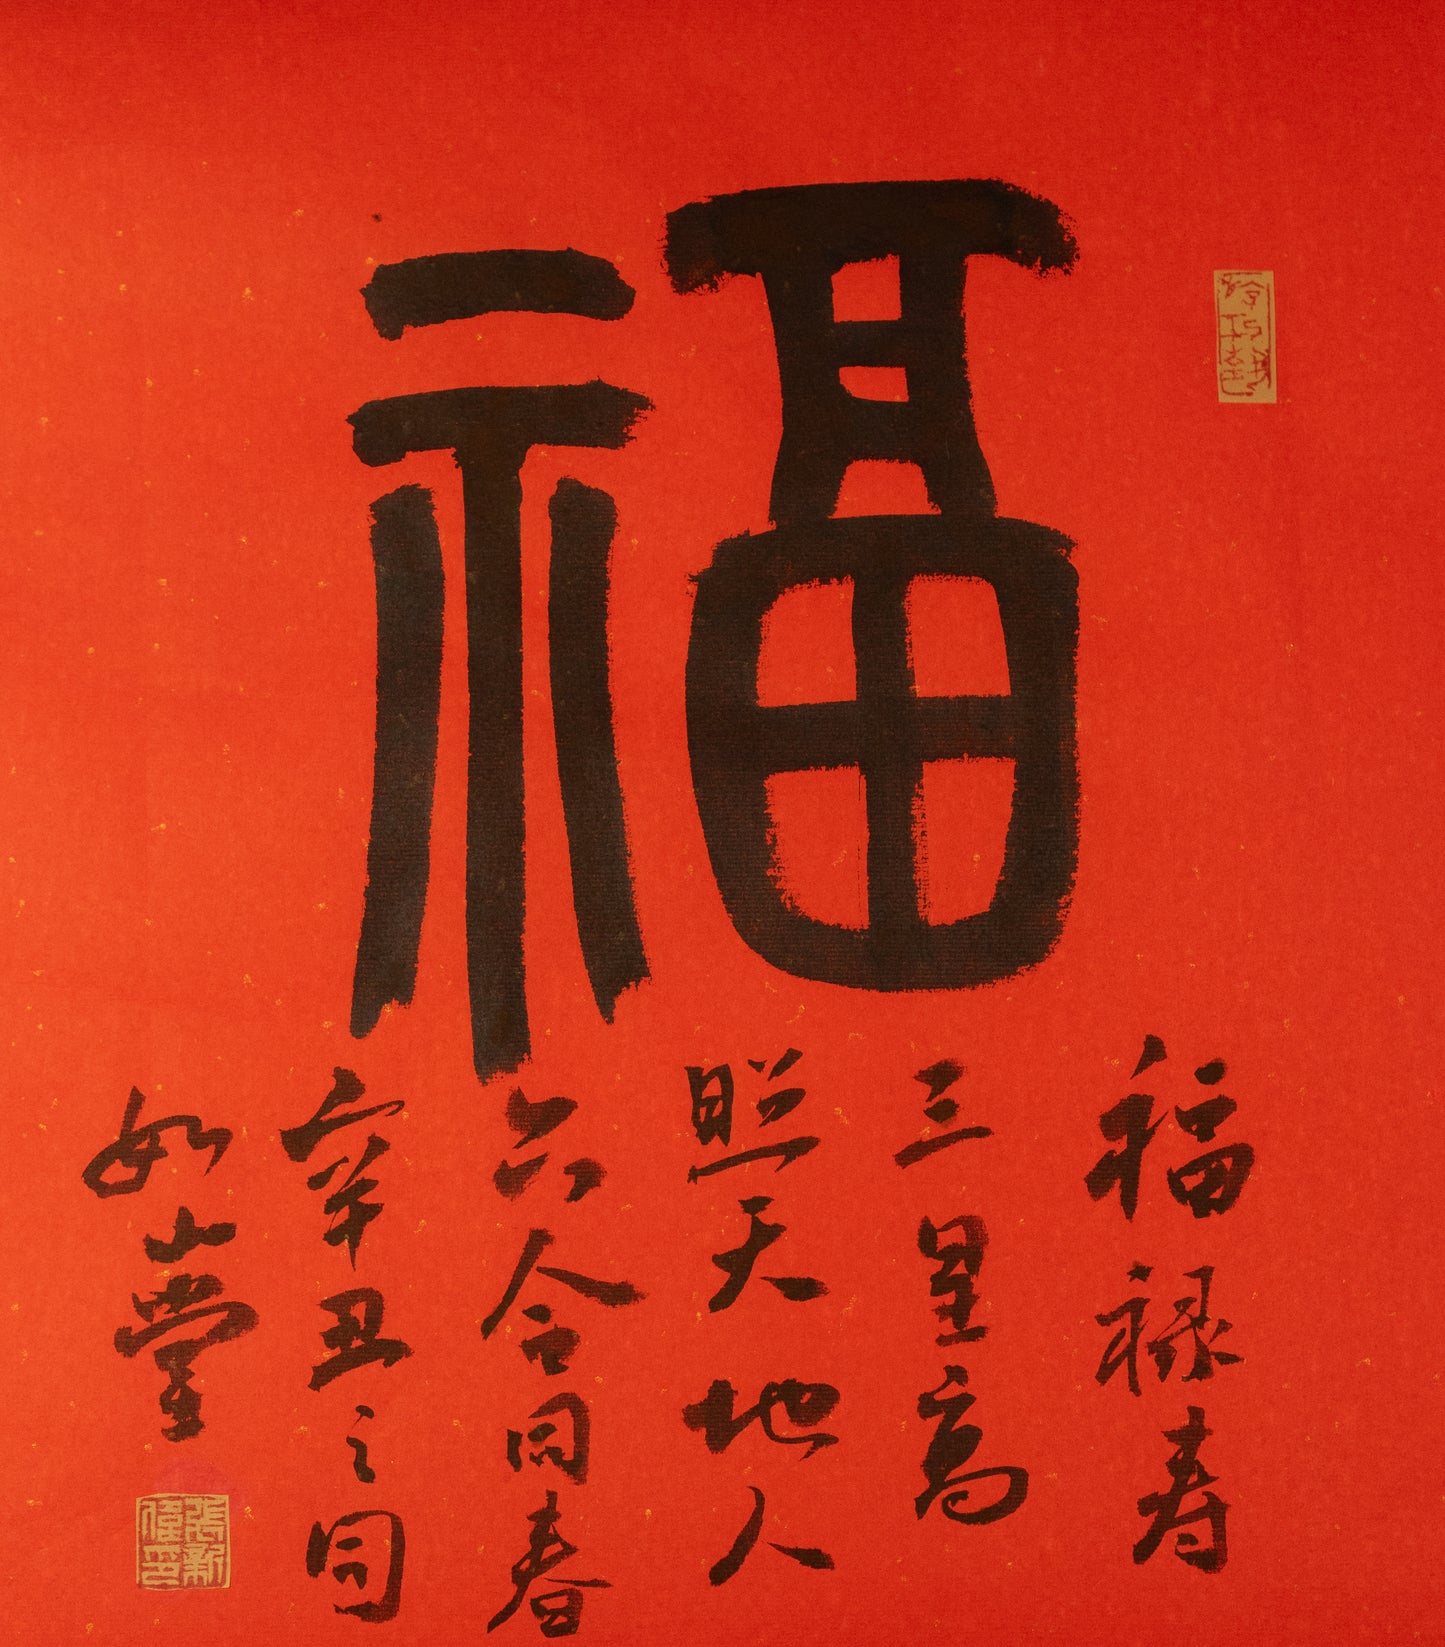 福
福禄寿
三星高
照天地人
六合同春
辛丑之同
如山堂
張新
偉印